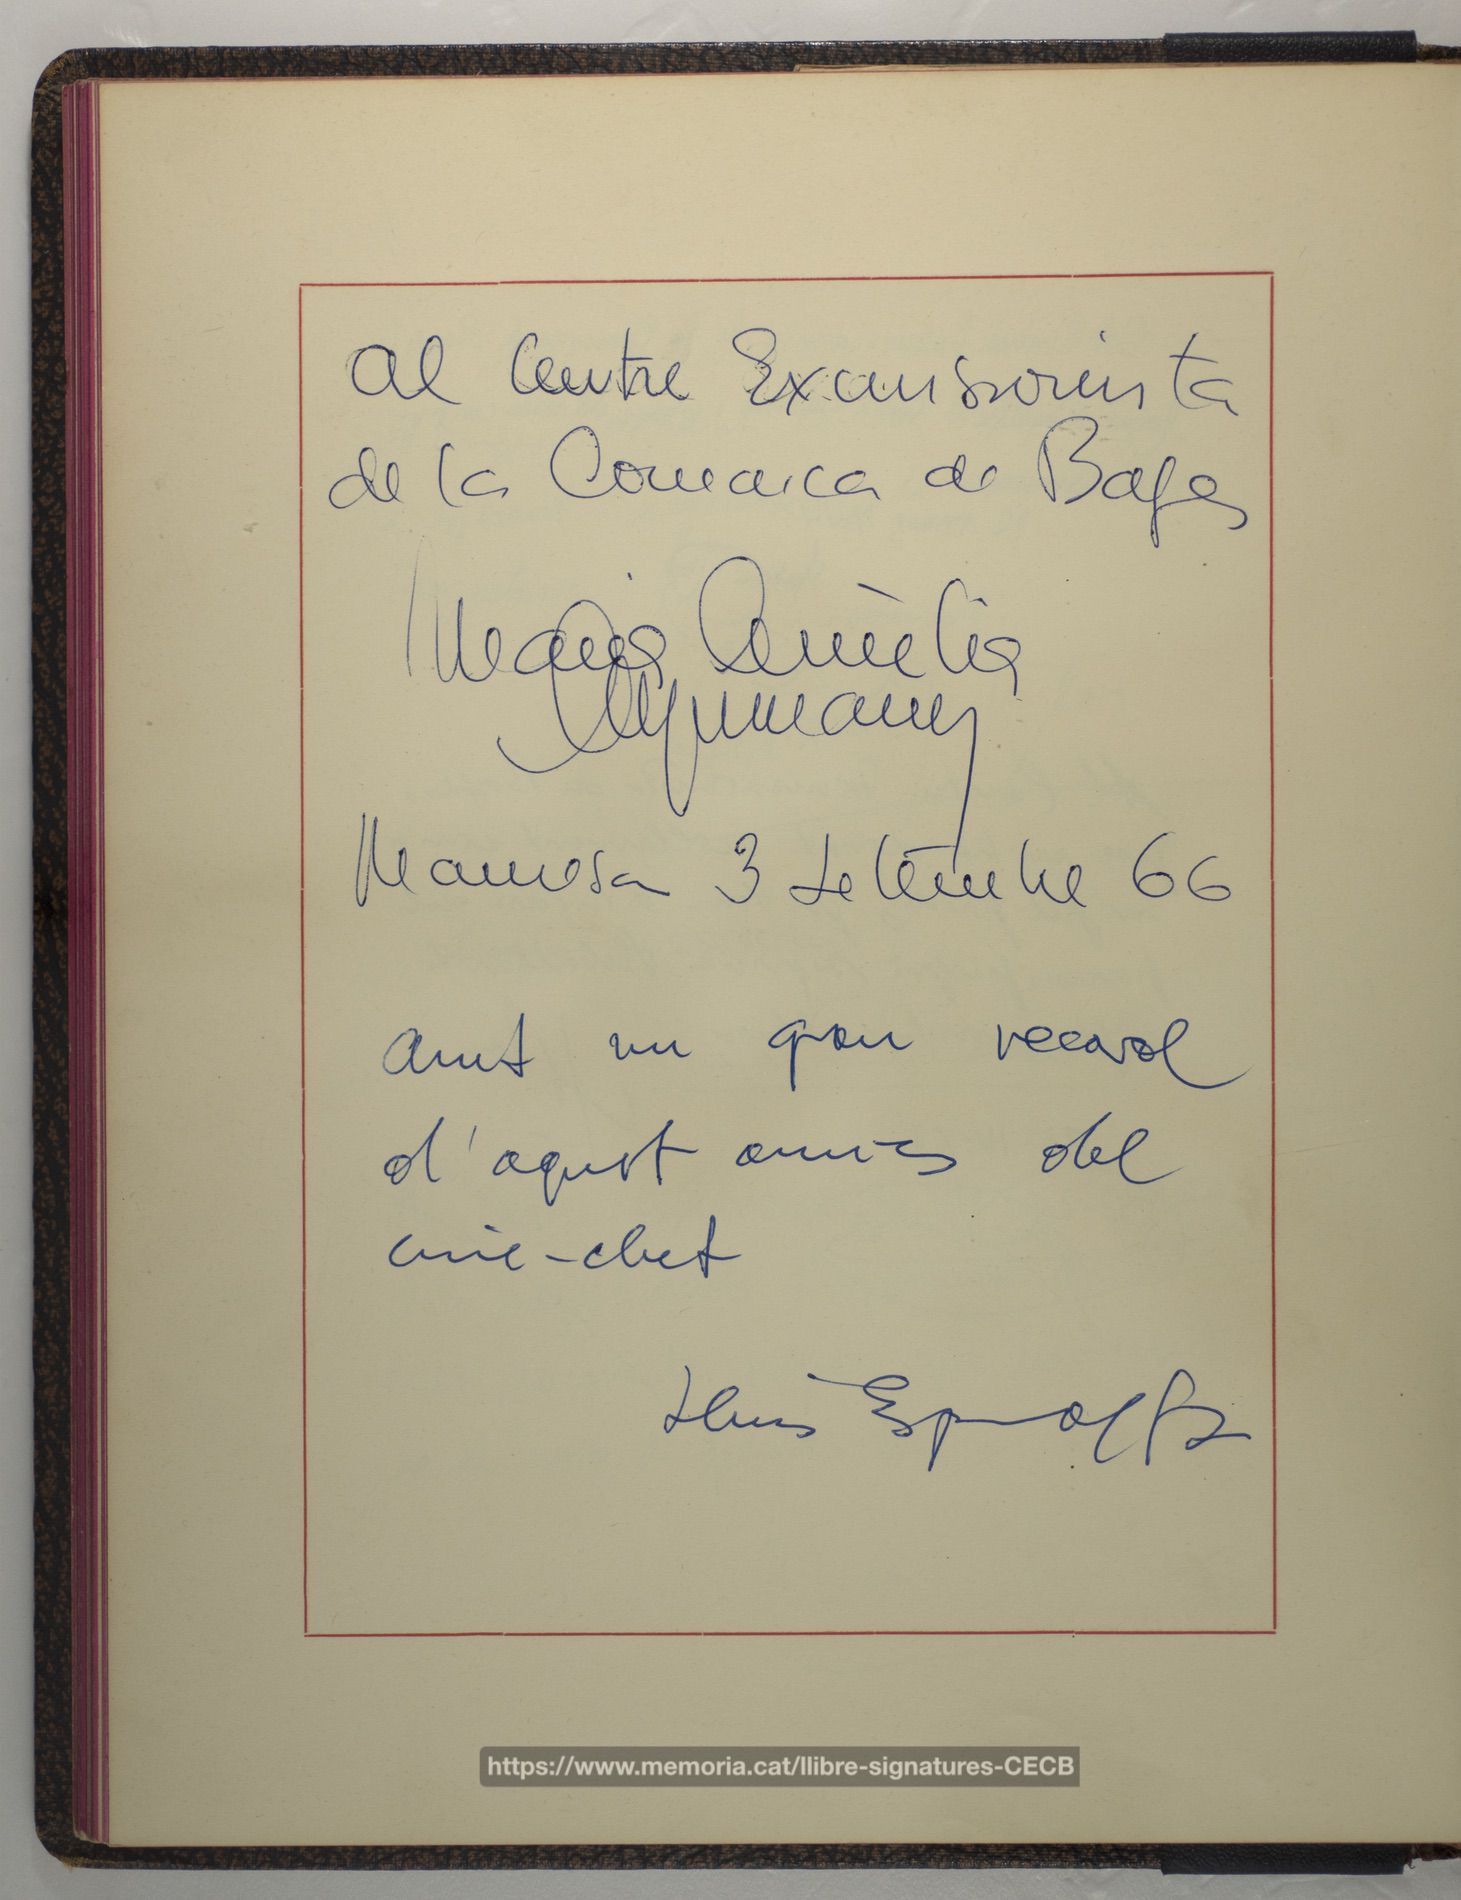 Al Centre Excursionista
de la Comarca de Bages
Maria Aurèlia
Capmany
Manresa 3 Setembre 66
Amb un gran record
d'aquest amics del
cine-club
Lluís
https://www.memoria.cat/llibre-signatures-CECB